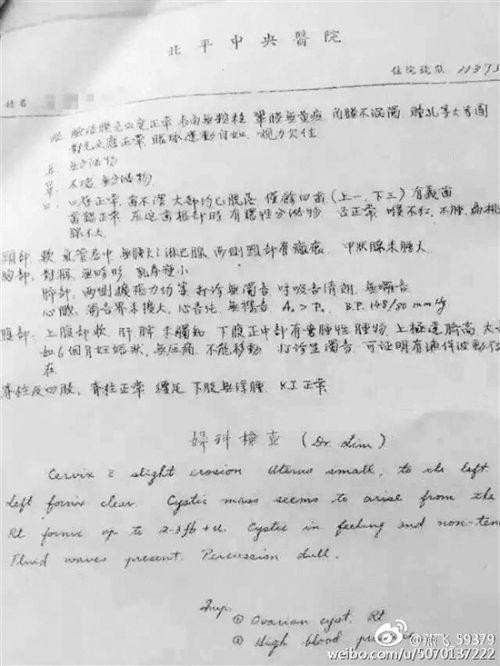 北平中央醫院
住院號數 11375
姓名
眼: 瞼結膜充血度正常 表面無顆粒 鞏膜無黃疸 角膜不混濁 瞳孔等大等圓
對光反應正常 眼球運動自如 視力欠佳
耳: 無分泌物
鼻: 不塞 無分泌物
口: 口唇正常 齒不潔 大部均已脫落 僅餘四齒 (上一,下三) 有義齒
齒齦正常 在這齒根部時有膿性分泌物 舌正常 喉不紅,不腫 扁桃
腺不大
頸部: 軟 氣管居中 無腫大之淋巴腺 兩側頸部有瘢痕 甲狀腺未腫大
胸部: 對稱 無畸形 乳房瘦小
肺部: 兩側擴張力均等 打診無濁音 呼吸音清朗 無囉音
心臟: 濁音界未擴大 心音純 無雜音 A₂>P₂ B.P. 148/50 mmHg
腹部: 上腹部軟 肝脾未觸知 下腹正中部有囊腫性腫物 上極達臍高 大
如6個月妊娠狀, 無壓痛, 不能移動 打診呈濁音 可証明有液體波動存
在
脊柱及四肢: 脊柱正常 纏足 下肢無浮腫 K.J. 正常
婦科檢查 (Dr. Lim)
Cervix c̄ slight erosion Uterus small, to the left
Left fornix clear. Cystic mass seems to arise from the
Rt fornix up to 2-3fb + u. Cystic in feeling and non-ten
Fluid waves present. Percussion dull.
Imp.
① Ovarian cyst. Rt
② High blood
@燕飞_59379
weibo.com/u/5070137222